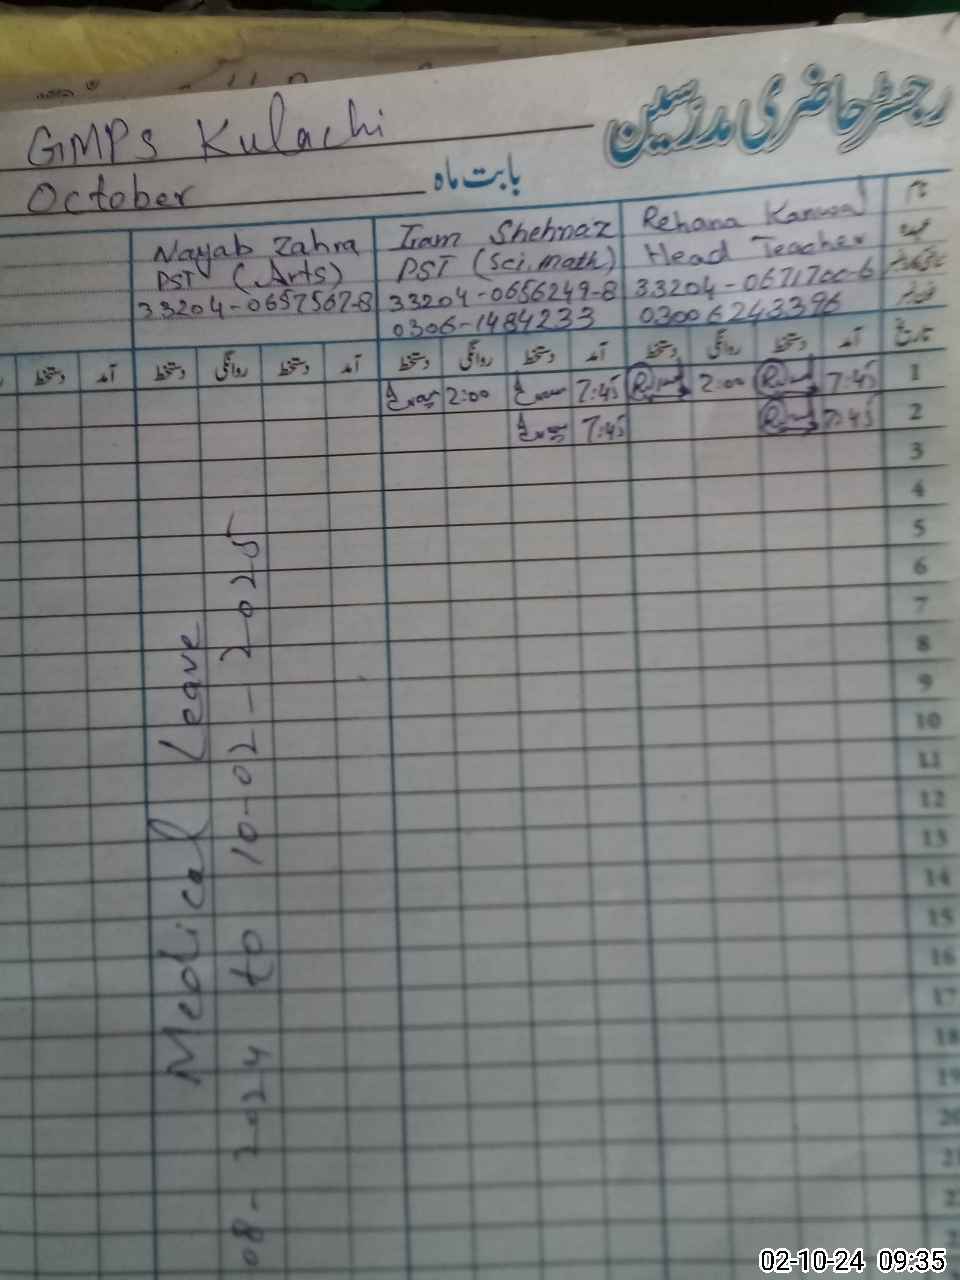 رجسٹر حاضری مدرسین
GMPS Kulachi
October بابت ماہ
Nayab Zahra
PST (Arts)
33204-0657567-8
Iram Shehnaz
PST (Sci, math)
33204-0656249-8
0306-1484233
Rehana Kanwal
Head Teacher
33204-0671700-6
03006243396
نام
عہدہ
تاریخ
آمد دستخط روانگی دستخط آمد دستخط روانگی دستخط آمد دستخط روانگی دستخط آمد دستخط
1 7:45 2:00 7:45 2:00
2 7:45 7:45
3
4
5
6
7
8
9
10
11
12
13
14
15
16
17
18
19
20
21
Medical Leave
08-2024 to 10-02-2025
02-10-24 09:35